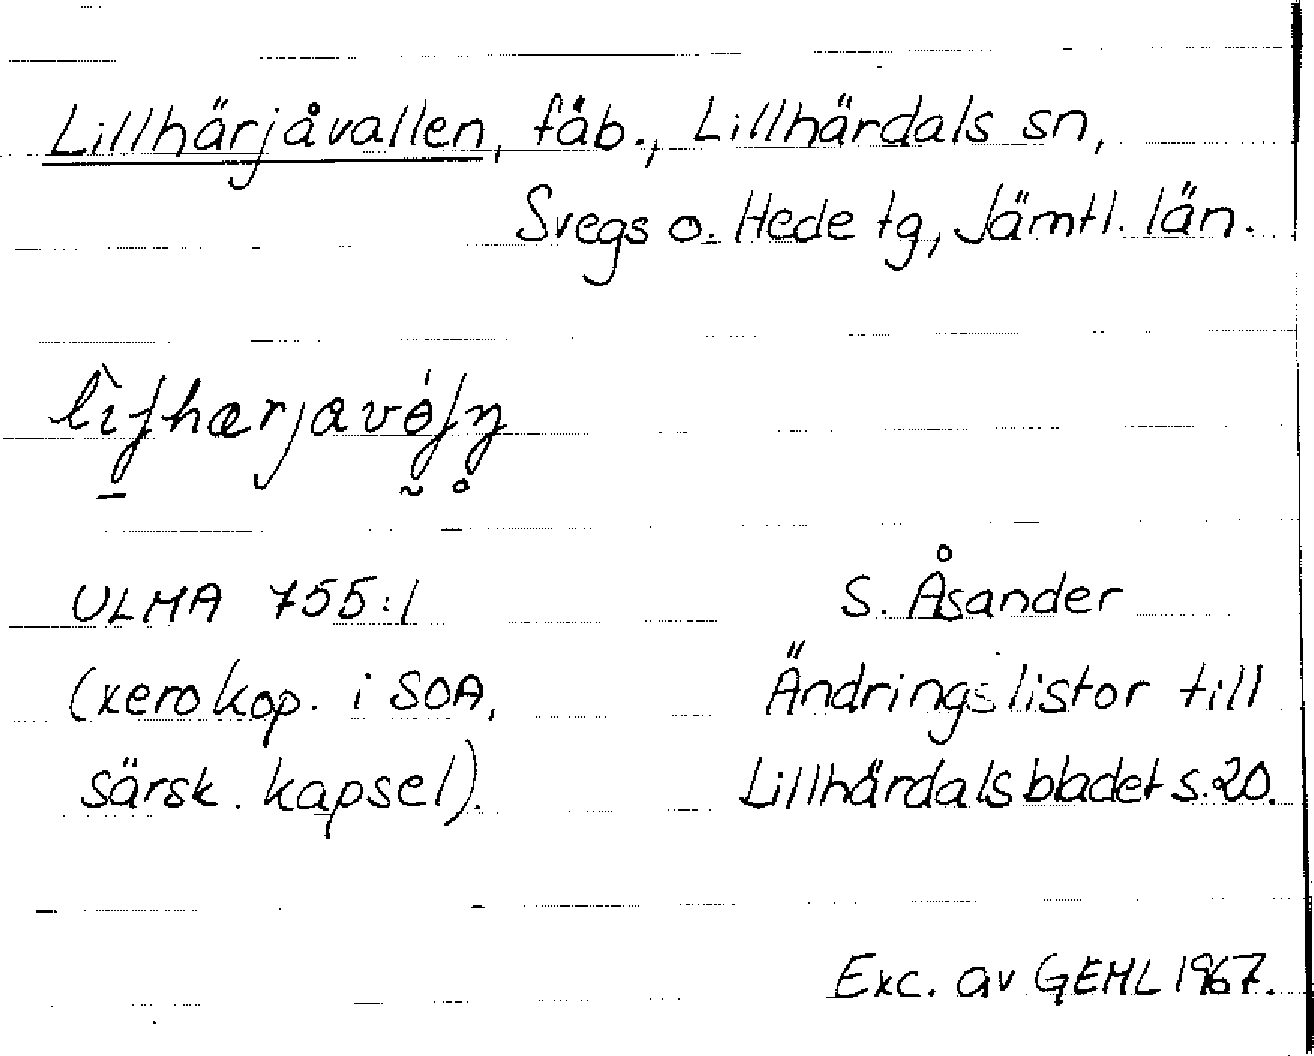 Lillhärjåvallen, fäb., Lillhärdals sn,
Svegs o. Hede tg, Jämtl. län.
ULMA 755:1
(xerokop. i SOA,
särsk. kapsel).
S. Åsander
Ändringslistor till
Lillhärdalsbladet s. 20.
Exc. av GEHL 1967.